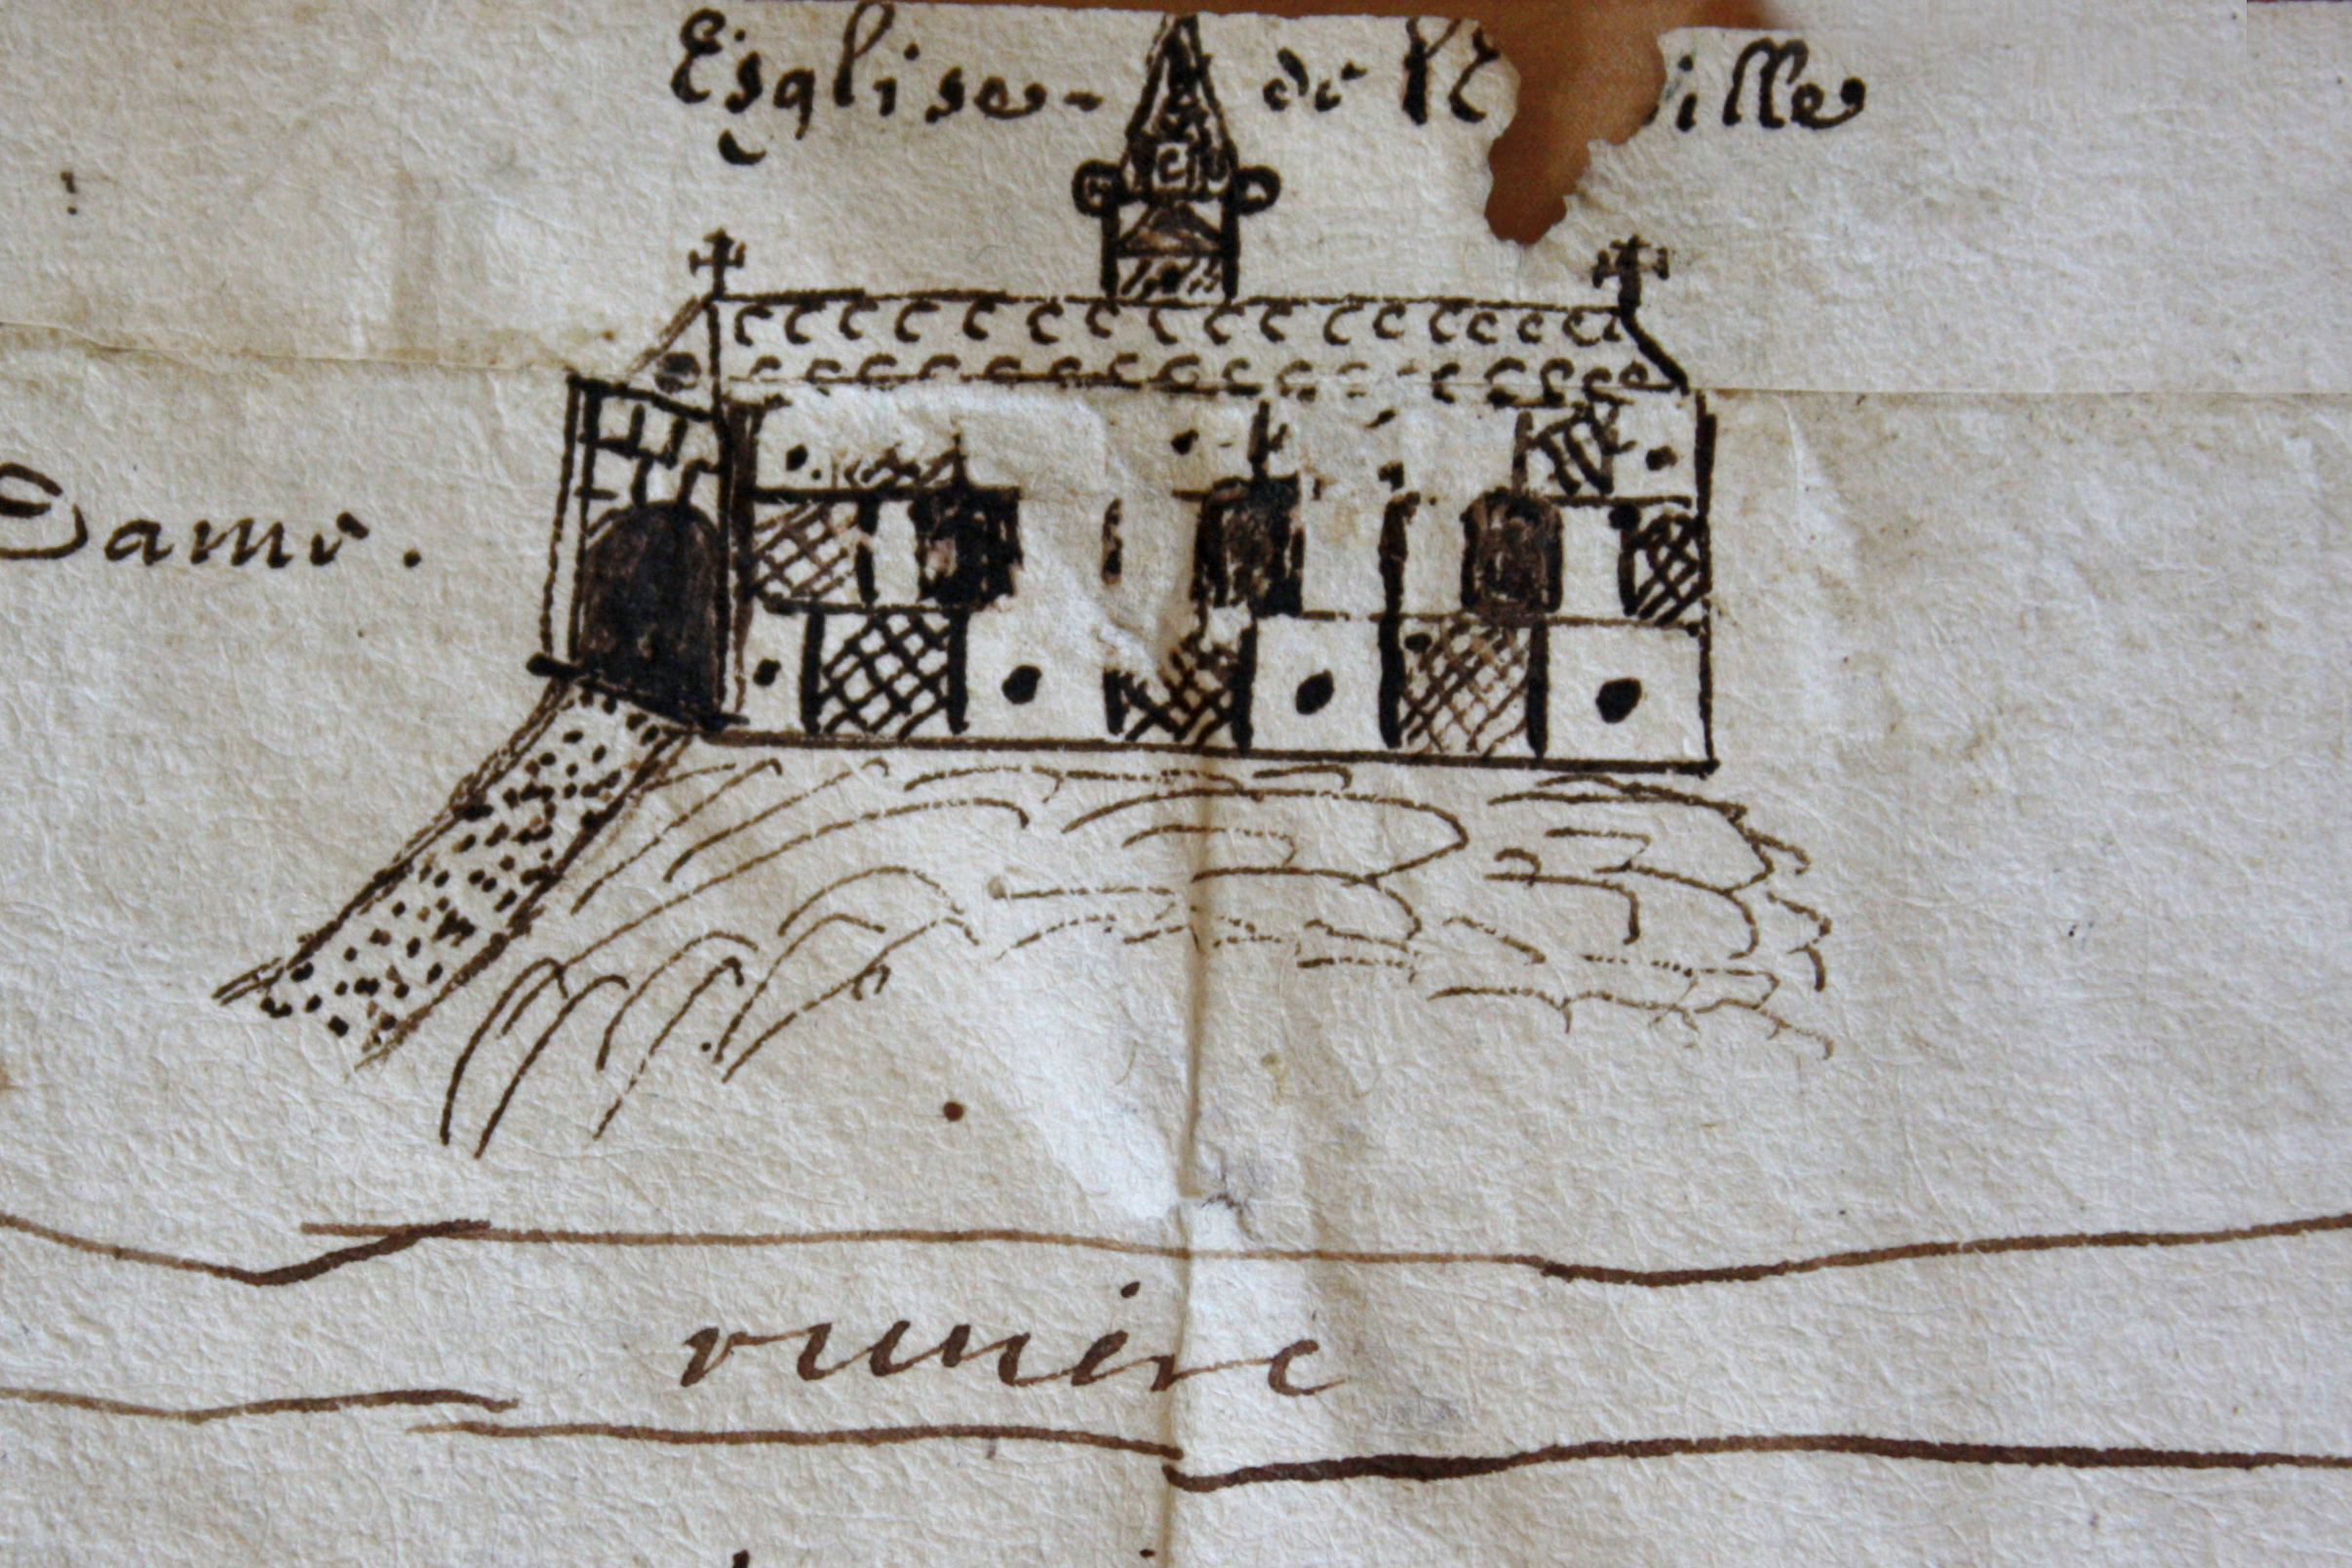 Esglise de
Dame.
riuiere